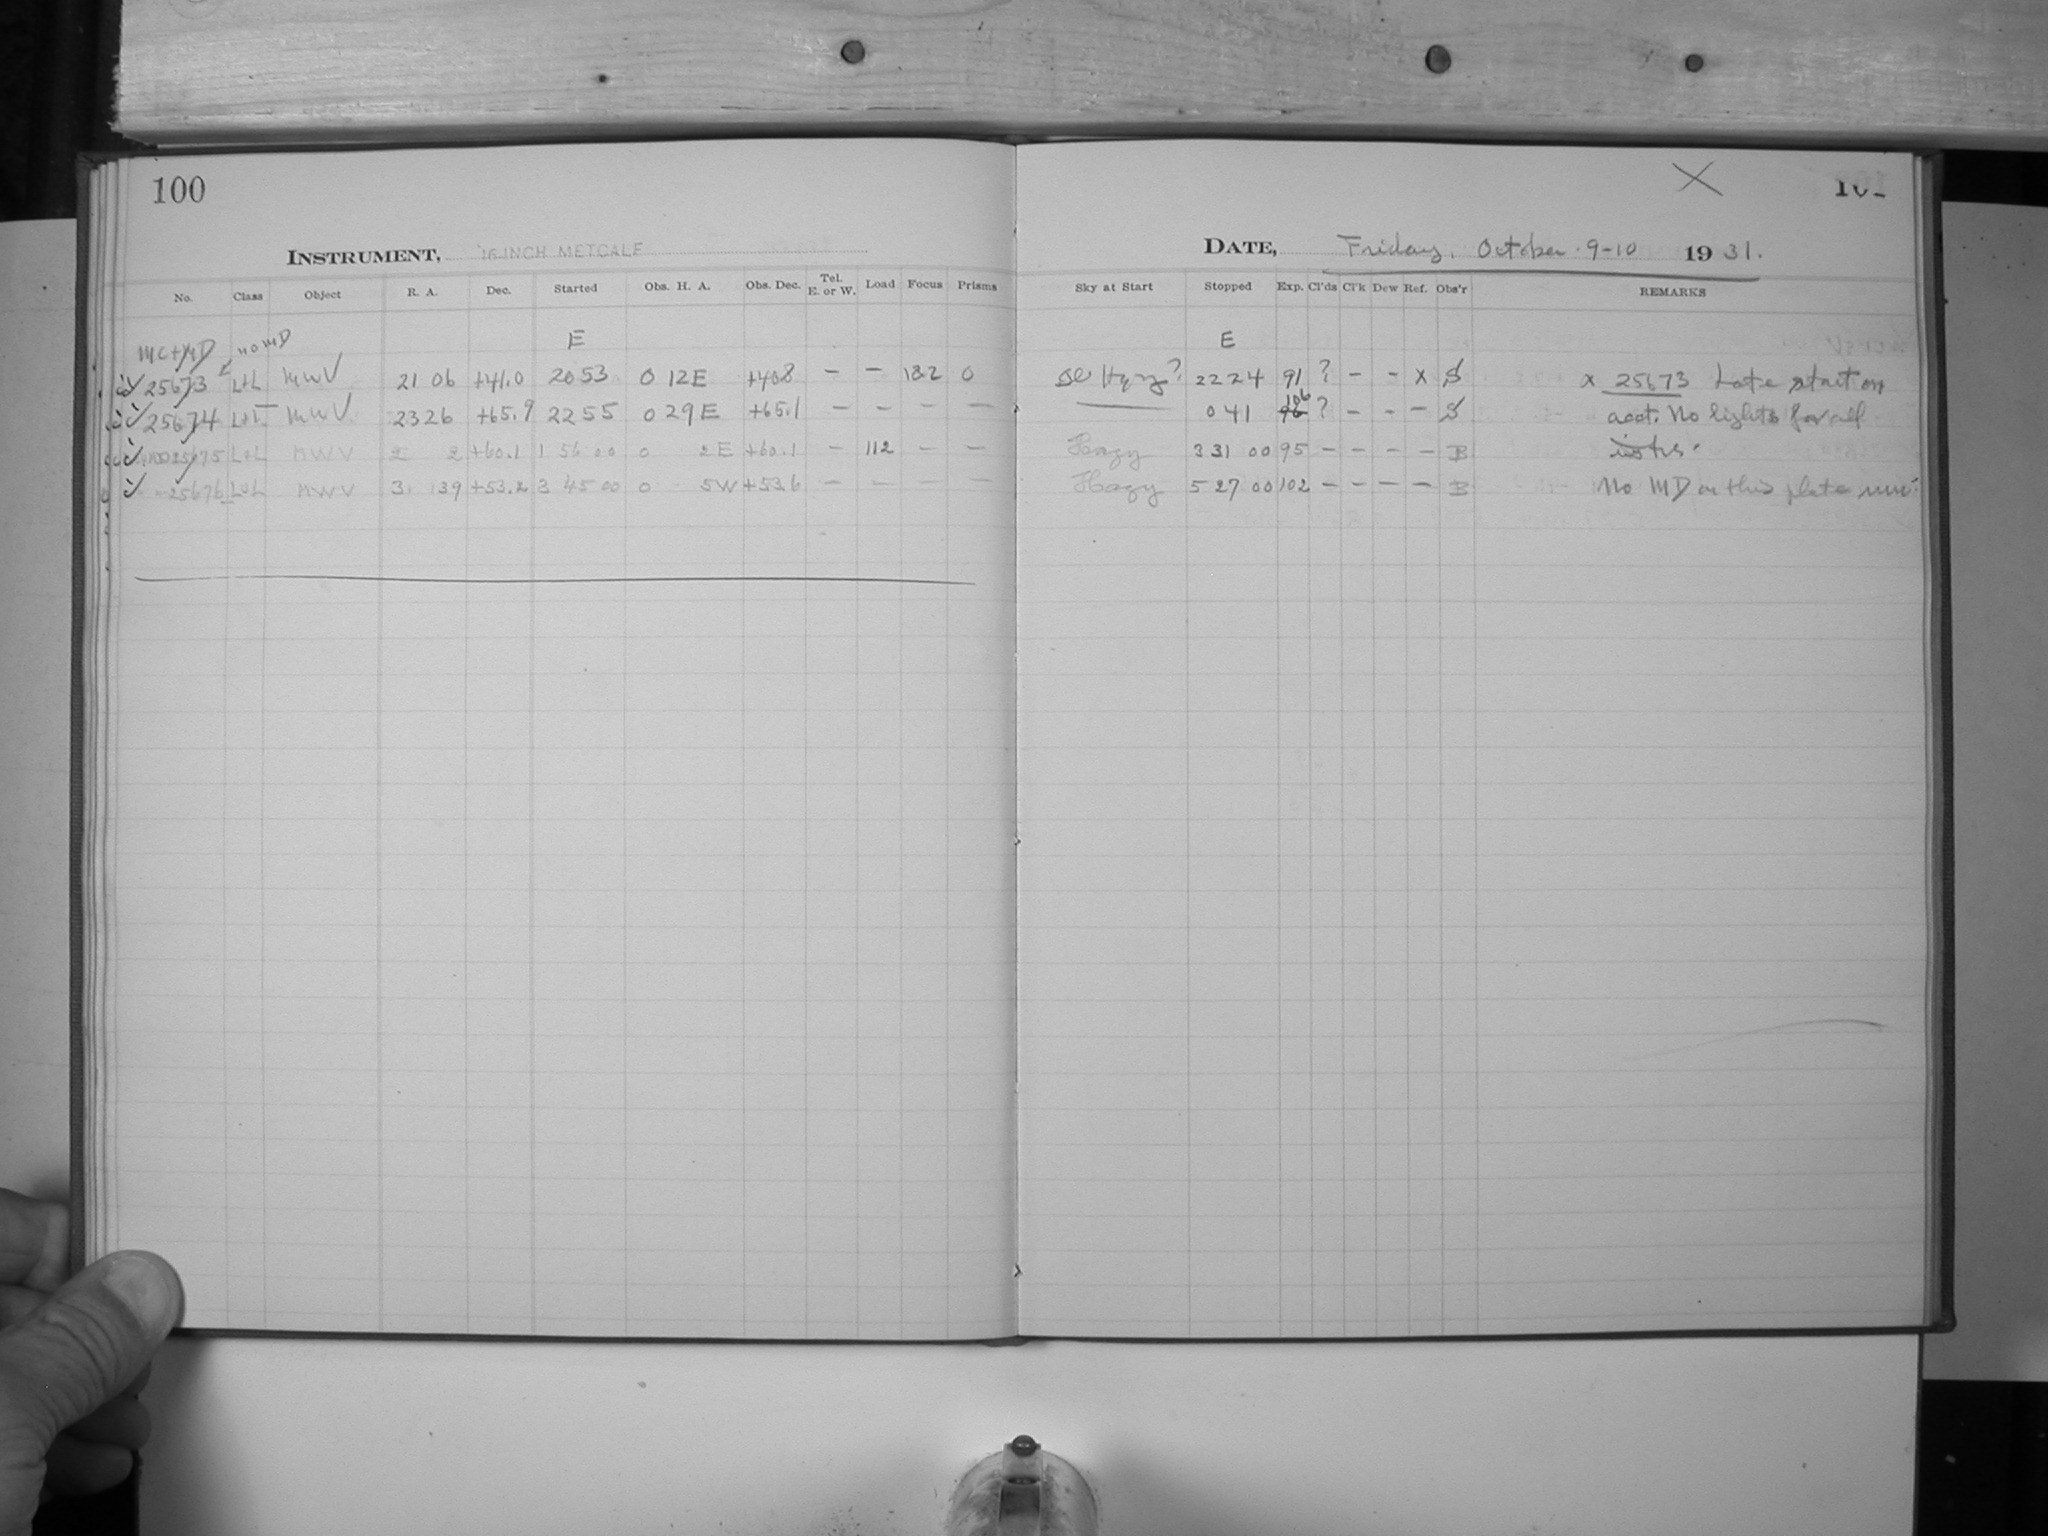 100
INSTRUMENT, 16-INCH METCALF
No. Class Object R. A. Dec. Started Obs. H. A. Obs. Dec. Tel. E. or W. Load Focus Prisms
MC+MD no MD E
25673 L+L MWV 21 06 +41.0 20 53 0 12E +40.8 — — 13.2 0
25674 L+L MWV 23 26 +65.9 22 55 0 29 E +65.1 — — — —
25675 L+L MWV 2 2 +60.1 1 56 00 0 2 E +60.1 — 112 — —
25676 L+L MWV 3 39 +53.2 3 45 00 0 5W +53.6 — — — —
X 101
DATE, Friday, October 9-10 1931.
Sky at Start Stopped Exp. Cl'ds Cl'k Dew Ref. Obs'r REMARKS
E
Hazy? 22 24 91 ? — — x S x 25673 Late start on
0 41 106 ? — — — S acct. No lights for all
Hazy 3 31 00 95 — — — — B insts.
Hazy 5 27 00 102 — — — — B No MD on this plate